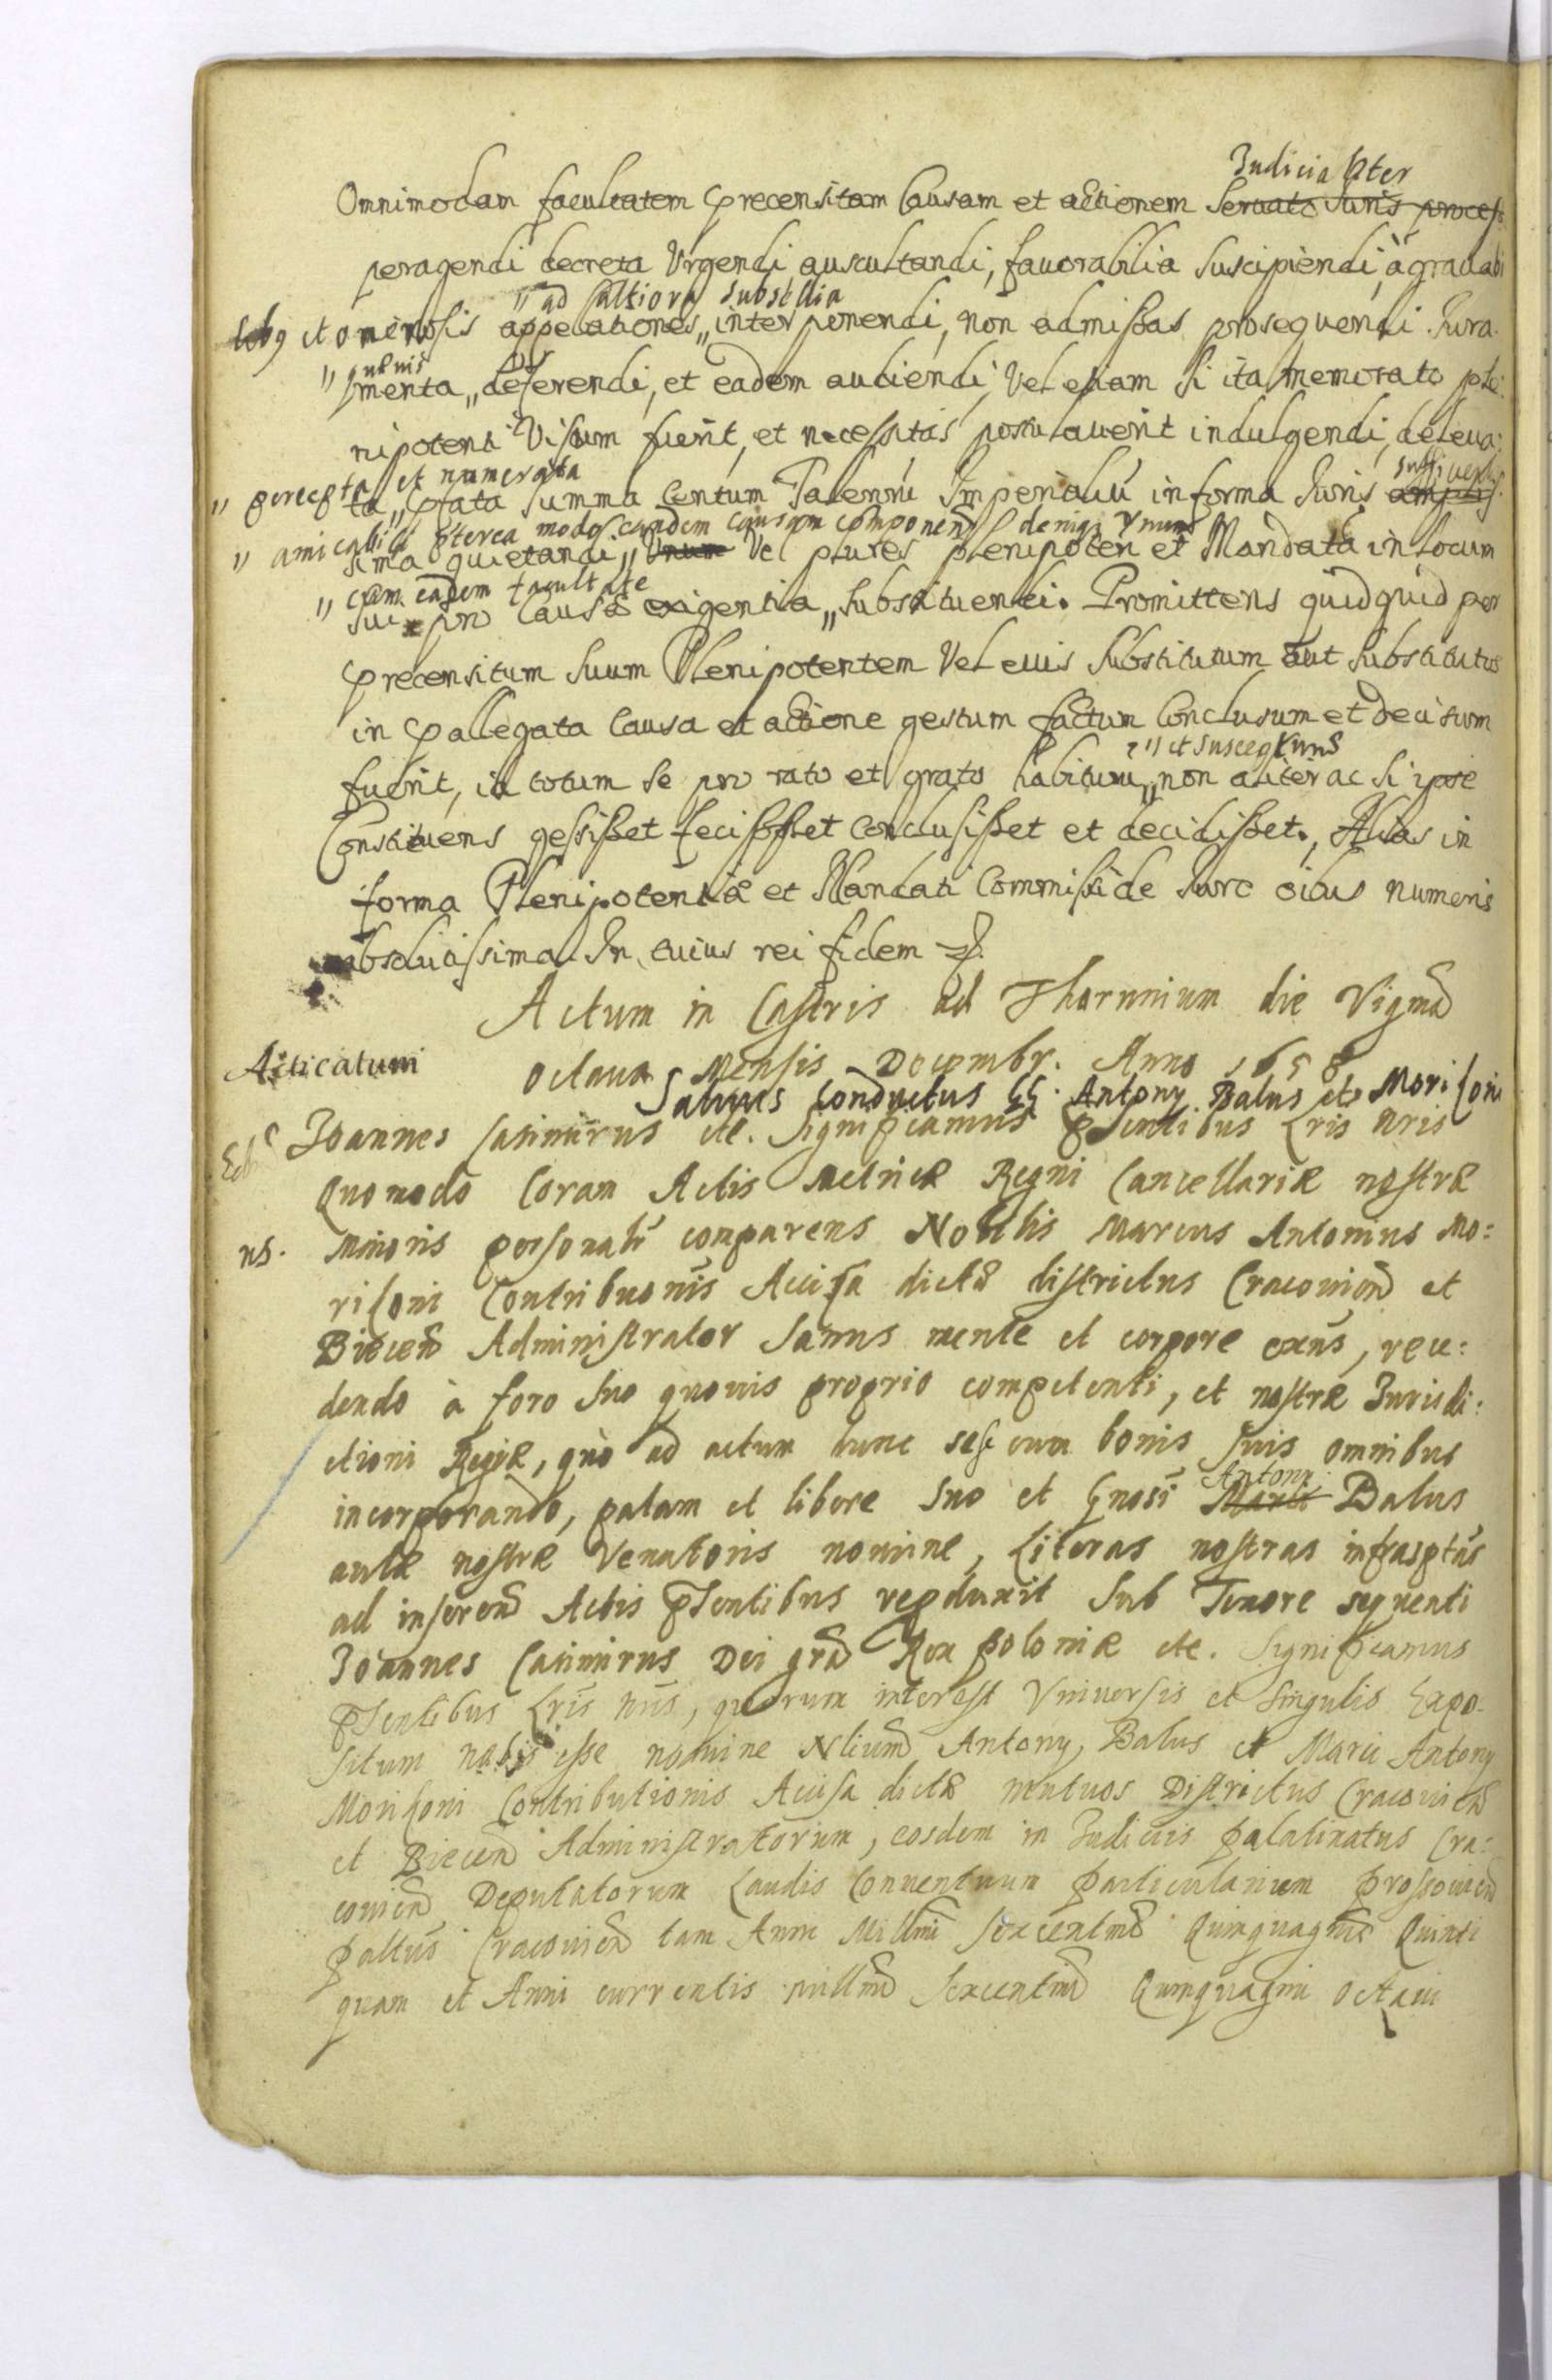 Judicialiter
Omnimodam facultatem precensitam Causam et actionem Servato Juris process
peragendi decreta Urgendi auscultandi, favorabilia Suscipiendi, à gravabi
" ad altiora subsellia
libq et onerosis appelationes " interponendi, non admissas prosequendi Jura
" quævis
menta " deferendi, et eadem audiendi, Vel etiam Si ita memorato ple:
nipotenti Visum fuerit, et necessitas postulaverit indulgendi, deleva:
" percepta et numerata
ta " pfata Summa Centum Talerorū Imperialiū in forma Juris amplis
" amicabili pterea modo eandem causam componendi deniq Unum
sima quietandi " Unum Vel plures plenipoten et Mandata in locum
" cum eadem facultate
sui pro Causæ exigentia " Substituendi. Promittens quidquid per
precensitum Suum Plenipotentem Vel eius Substitutum aut Substitutos
in pallegata Causa et actione gestum factum Conclusum et decisum
" et suscepturus
fuerit, id totum Se pro rato et grato habiturū " non aliter ac Si ipse
Constituens gessisset fecisset Conclusisset et decidisset., Alias in
forma Plenipotentiæ et Mandati Commissi de Jure oibus numeris
absolutissima. In cuius rei fidem
Actum in Castris ad Thorunium die Vigmã
Acticatum
octava Mensis Decembr. Anno 1658
Salvus Conductus GG. Antony Balus et Morisoni
Joannes Casimirus etc. Significamus pSentibus Lris nris
Quomodo Coram Actis Metricæ Regni Cancellariæ nostræ
ns. Minoris personalr comparens Nobilis Marcus Antonius Mo:
risoni Contribuonis Accisa dictæ districtus Cracovien et
Biecen Administrator Sanus mente et corpore exns, rece:
dendo à foro Suo quovis proprio competenti, et nostræ Jurisdi:
ctioni Regiæ, quò ad actum hunc sese cum bonis Suis omnibus
Antony
incorporando, palam et libere Suo et Gnosi Marci Balus
aulæ nostræ Venatoris nomine, Literas nostras infrasptas
ad inserend Actis pSentibus repduxit Sub Tenore sequenti
Joannes Casimirus Dei gra Rex Poloniæ etc. Significamus
pSentibus Lris nris, quorum interest Universis et Singulis Expo
situm nobis esse nomine Nlium Antony Balus et Marci Antony
Morisoni Contributionis Accisa dictæ Districtus Cracovien
et Biecen Administratorum, eosdem in Judicijs Palatinatus Cra:
covien Deputatorum Laudis Conventuum Particularium Prossovien
Paltus Cracovien tam Anni Millmi Sexcentmi Quinquagmi Quinti
quam et Anni currentis millmi Sexcentmi Quinquagmi octavi